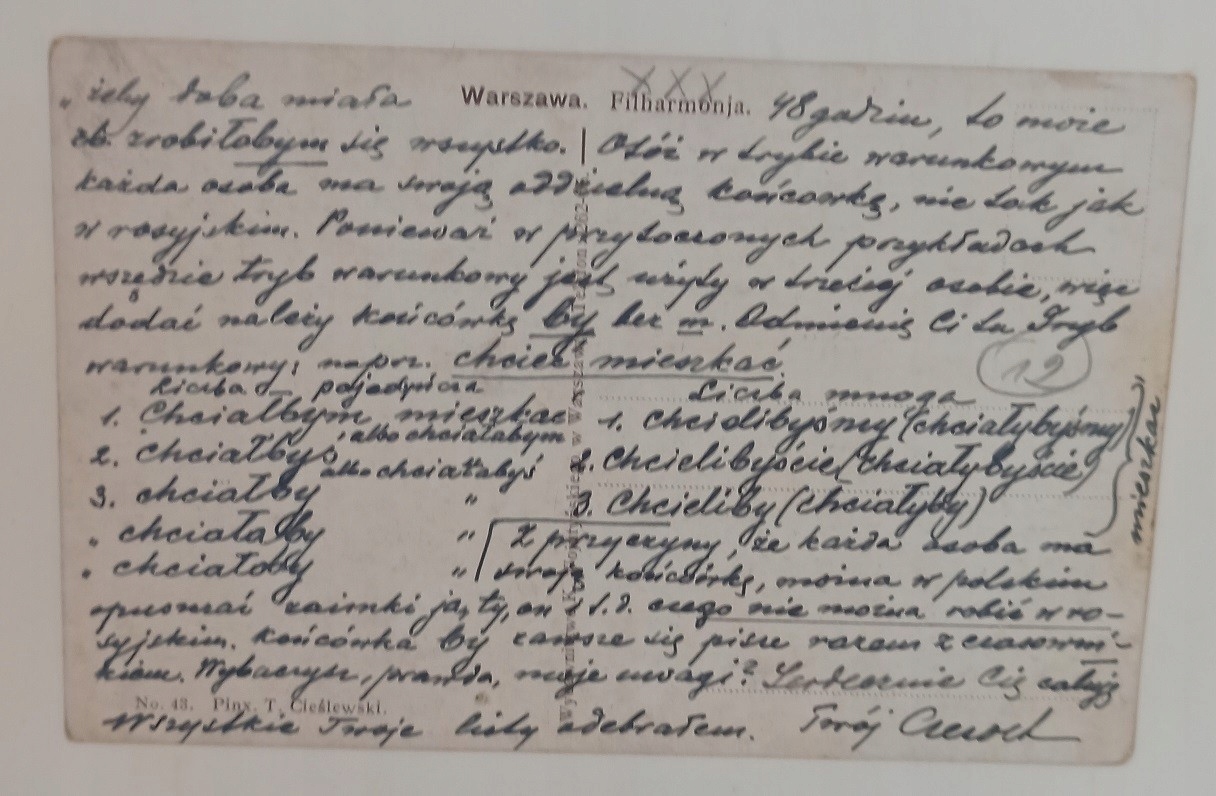 XXX
„żeby doba miała Warszawa. Filharmonja. 48 godzin, to może
zrobiłobym się wszystko. | Otóż w trybie warunkowym
każda osoba ma swoją oddzielną końcówkę, nie tak jak
w rosyjskim. Ponieważ w przytoczonych przykładach
wszędzie tryb warunkowy jest użyty w trzeciej osobie, więc
dodać należy końcówkę by bez m. Odmienię Ci tu Tryb
warunkowy; napr. chcieć mieszkać
12
Liczba pojedyńcza
1. Chciałbym mieszkać
albo chciałabym
2. Chciałbyś
albo chciałabyś
3. chciałby "
" chciałaby "
" chciałoby "
Liczba mnoga
1. Chcielibyśmy (chciałybyśmy)
2. Chcielibyście (chciałybyście)
3. Chcieliby (chciałyby)
mieszkać
Z przyczyny, że każda osoba ma
swoją końcówkę, można w polskim
opuszczać zaimki ja, ty, on i t.d. czego nie można robić w ro-
syjskim. Końcówka by zawsze się pisze razem z czasowni-
kiem. Wybaczysz, prawda, moje uwagi? Serdecznie Cię całuję
No. 43. Pinx. T. Cieślewski.
Wszystkie Twoje listy odebrałem. Twój